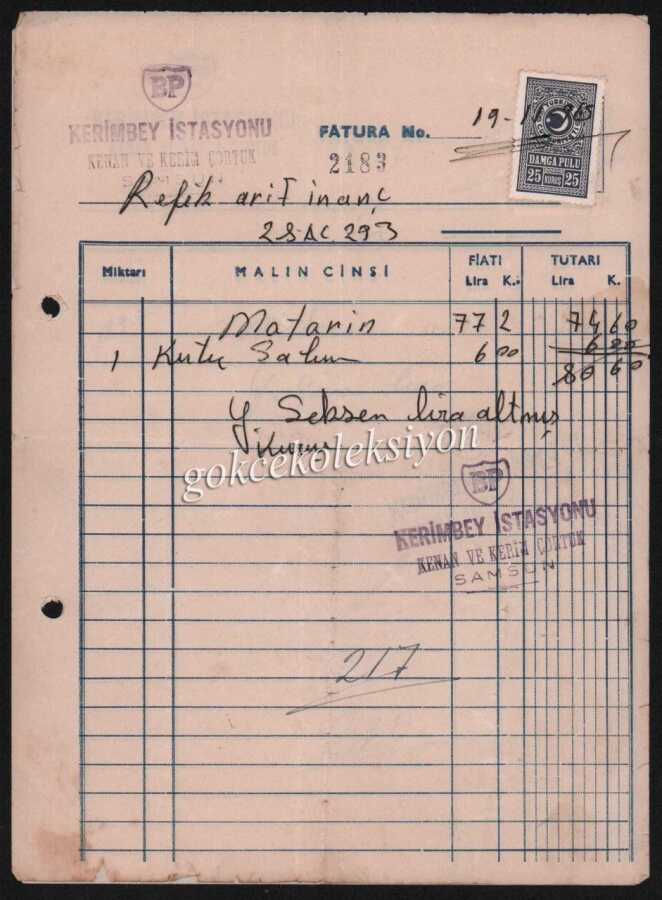 BP
KERİMBEY İSTASYONU
KENAN VE KERİM ÇORTUK
SAMSUN
FATURA No.
2183
19-11-965
TÜRKİYE
DAMGA PULU
25 KURUŞ 25
Refik arif inanç
Miktarı MALIN CİNSİ FİATI TUTARI
Lira K. Lira K.
Motorin 77 2 74 60
1 Kutu 6 00 6 00
80 60
Y Seksen lira altmış
Kuruş
gokcekoleksiyon
BP
KERİMBEY İSTASYONU
KENAN VE KERİM ÇORTUK
SAMSUN
217